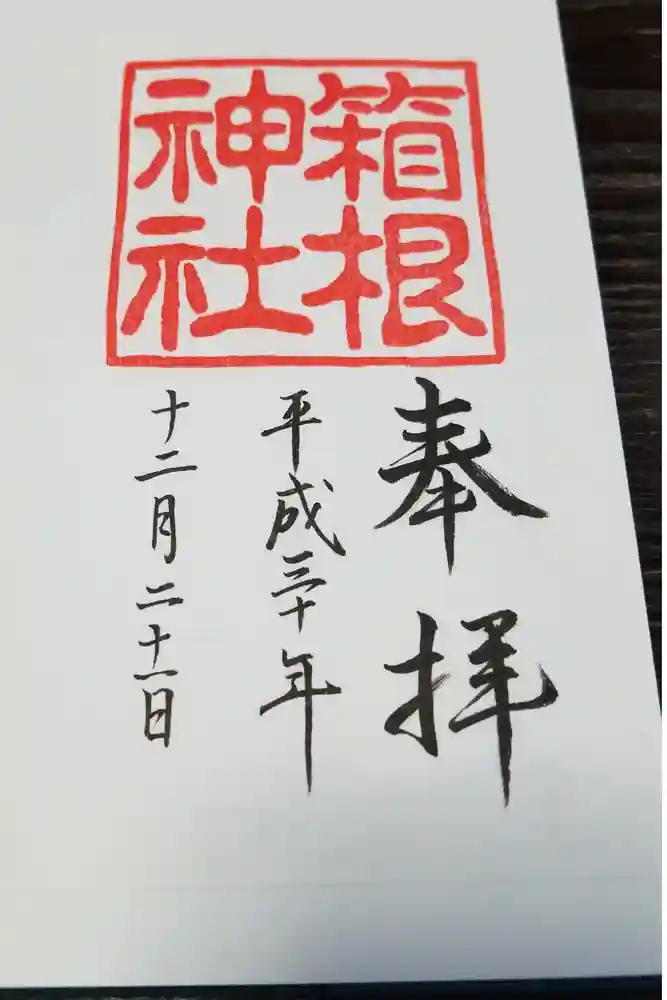 箱根
神社
奉拝
平成三十年
十二月二十一日